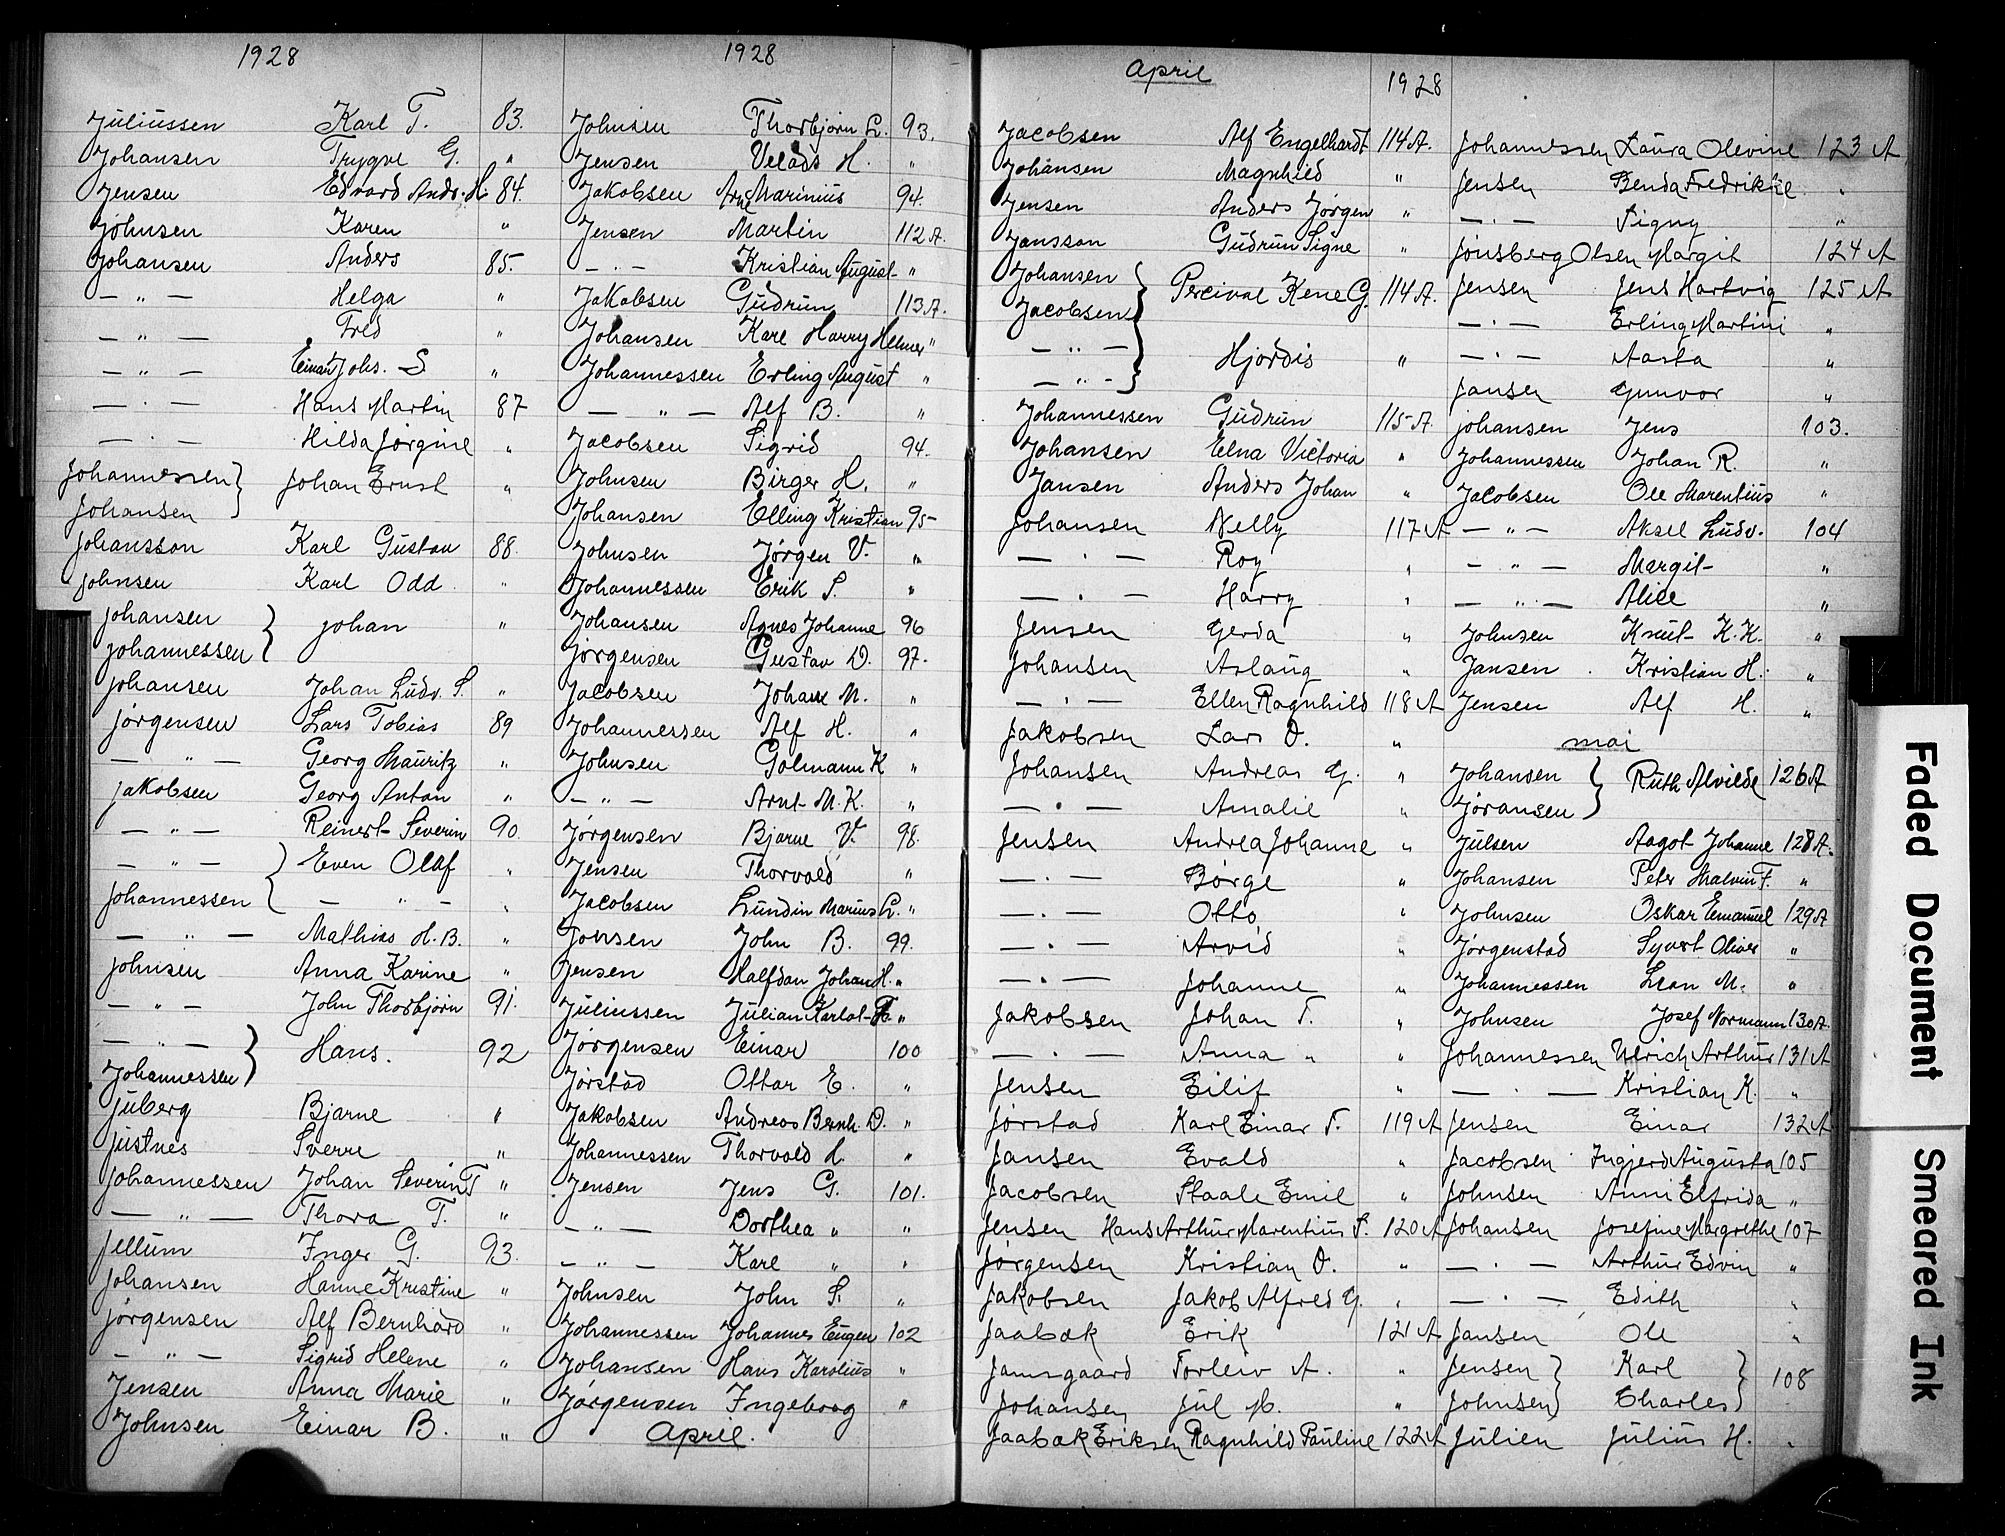 1928
Juliussen Karl T. 83.
Johansen Trygve G. "
Jensen Edvard Andr. H. 84.
Johnsen Karen "
Johansen Anders 85.
— " — Helga "
— " — Fred "
— " — Einar Johs. S "
— " — Hans Martin 87
— " — Hilda Jørgine "
Johannessen } Johan Ernst "
Johansen
Johansson Karl Gustav 88.
Johnsen Karl Odd "
Johansen } Johan "
Johannessen
Johansen Johan Ludv. S. "
Jørgensen Lars Tobias 89
— " — Georg Mauritz "
Jakobsen Georg Anton "
— " — Reinert Severin 90.
— " — } Even Olaf "
Johannessen { — " — "
— " — Mathias H. B. "
Johnsen Anna Karine "
— " — John Thorbjørn 91.
— " — } Hans. 92
Johannessen
Juberg Bjarne "
Justnes Sverre "
Johannessen Johan Severin T "
— " — Thora T. "
Jellum Inger G. 93.
Johansen Hanne Kristine "
Jørgensen Alf Bernhard "
— " — Sigrid Helene "
Jensen Anna Marie "
Johnsen Einar B. "
1928
Johnsen Thorbjørn L. 93.
Jensen Velads H. "
Jakobsen Arne Marinius 94.
Jensen Martin 112 A.
— " — Kristian August "
Jakobsen Gudrun 113 A.
Johansen Karl Harry Helmer "
Johannessen Erling August "
— " — Alf B. "
Jacobsen Sigrid 94.
Johnsen Birger H. "
Johansen Elling Kristian 95
Johnsen Jørgen V. "
Johannessen Erik S. "
Johansen Agnes Johanne 96
Jørgensen Gustav D. 97.
Jacobsen Johan M. "
Johannessen Alf H. "
Johnsen Golmann K "
— " — Arnt M. K. "
Jørgensen Bjarne V. 98.
Jensen Thorvald "
Jacobsen Lundin Marius L. "
Jonsen John B. 99.
Jensen Halfdan Johan H. "
Juliussen Julian Karlot Fr. "
Jørgensen Einar 100
Jørstad Ottar E. "
Jakobsen Andreas Bernh. D. "
Johannessen Thorvald L. "
Jensen Jens G. 101.
— " — Dorthea " "
— " — Karl " "
Johnsen John S. "
Johannessen Johannes Eugen 102
Johansen Hans Karolius "
Jørgensen Ingeborg "
April.
April 1928
Jacobsen Alf Engelhardt 114 A.
Johansen Magnhild "
Jensen Anders Jørgen "
Jansson Gudrun Signe "
Johansen } Percival Rene G. 114 A.
Jacobsen
— " — } Hjørdis "
— " —
Johannessen Gudrun 115 A.
Johansen Elna Victoria "
Jansen Anders Johan "
Johansen Nelly 117 A
— " — Roy "
— " — Harry "
Jensen Gerda "
Johansen Aslaug "
— " — Ellen Ragnhild 118 A
Jakobsen Lars O. "
Johansen Andreas G. "
— " — Amalie "
Jensen Andrea Johanne "
— " — Børge "
— " — Otto "
— " — Arvid "
— " — Johanne "
Jakobsen Johan T. "
— " — Anna " "
Jensen Eilif "
Jørstad Karl Einar T. 119 A
Jansen Evald "
Jacobsen Staale Emil "
Jensen Hans Arthur Marentius S. 120 A
Jørgensen Kristian O. "
Jakobsen Jakob Alfred G. "
Jaabæk Erik 121 A
Jamsgaard Torleiv A. "
Johansen Jul M. "
Jaabæk Eriksen Ragnhild Pauline 122 A
Johannessen Laura Olevine 123 A
Jensen Benda Fredrikke "
— " — Signy "
Jønsberg Olsen Margit 124 A
Jensen Jens Hartvig 125 A
— " — Erling Martini "
— " — Aasta "
Jansen Gunvor "
Johansen Jens 103.
Johannessen Johan R. "
Jacobsen Ole Marentius "
— " — Aksel Ludv. 104
— " — Margit "
— " — Alice "
Johnsen Knut K. K. "
Jansen Kristian H. "
Jensen Alf H. "
mai
Johansen } Ruth Alvilde 126 A
Jøransen
Julsen Aagot Johanne 128 A.
Johansen Peter Malvin F. "
Johnsen Oskar Emanuel 129 A
Jørgenstad Syvert Oliver "
Johannessen Leon M. "
Johnsen Josef Normann 130 A.
Johannessen Ulrich Arthur 131 A
— " — Kristian K. "
Jensen Einar 132 A
Jacobsen Ingjerd Augusta 105
Johnsen Anni Elfrida "
Johansen Josefine Margrethe 107
— " — Arthur Edvin "
— " — Edith "
Jansen Ole "
Jensen } Karl } 108
Johnsen } Charles }
Julien Julius H. "
Faded Document
Smeared Ink